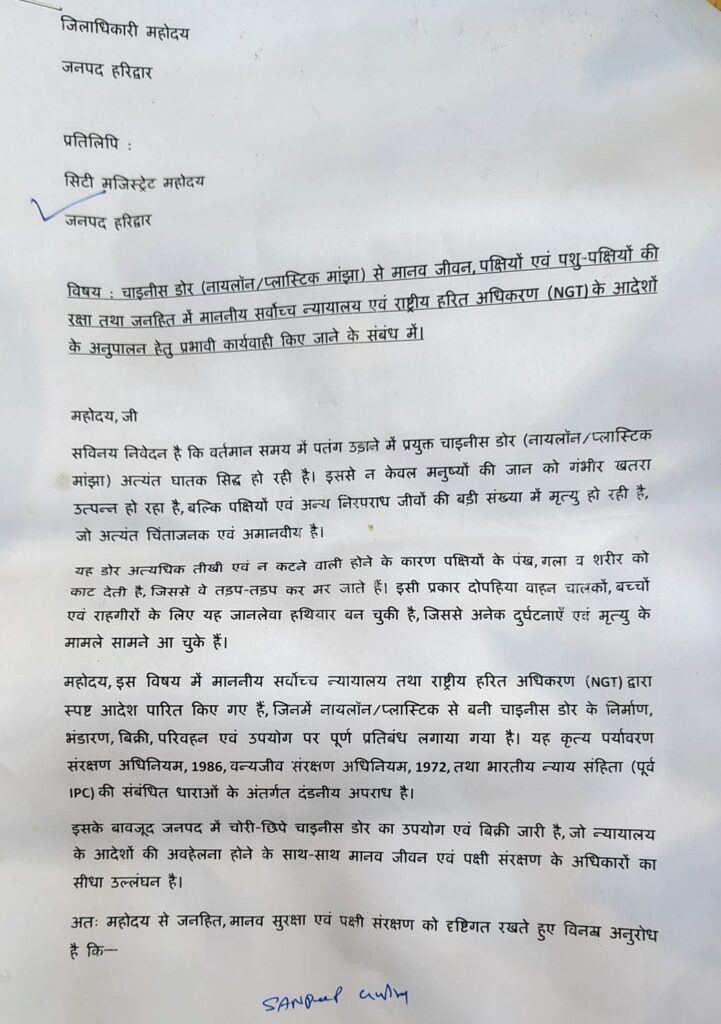 जिलाधिकारी महोदय
जनपद हरिद्वार
प्रतिलिपि :
सिटी मजिस्ट्रेट महोदय
जनपद हरिद्वार
विषय : चाइनीस डोर (नायलॉन/प्लास्टिक मांझा) से मानव जीवन, पक्षियों एवं पशु-पक्षियों की
रक्षा तथा जनहित में माननीय सर्वोच्च न्यायालय एवं राष्ट्रीय हरित अधिकरण (NGT) के आदेशों
के अनुपालन हेतु प्रभावी कार्यवाही किए जाने के संबंध में।
महोदय, जी
सविनय निवेदन है कि वर्तमान समय में पतंग उड़ाने में प्रयुक्त चाइनीस डोर (नायलॉन/प्लास्टिक
मांझा) अत्यंत घातक सिद्ध हो रही है। इससे न केवल मनुष्यों की जान को गंभीर खतरा
उत्पन्न हो रहा है, बल्कि पक्षियों एवं अन्य निरपराध जीवों की बड़ी संख्या में मृत्यु हो रही है,
जो अत्यंत चिंताजनक एवं अमानवीय है।
यह डोर अत्यधिक तीखी एवं न कटने वाली होने के कारण पक्षियों के पंख, गला व शरीर को
काट देती है, जिससे वे तड़प-तड़प कर मर जाते हैं। इसी प्रकार दोपहिया वाहन चालकों, बच्चों
एवं राहगीरों के लिए यह जानलेवा हथियार बन चुकी है, जिससे अनेक दुर्घटनाएँ एवं मृत्यु के
मामले सामने आ चुके हैं।
महोदय, इस विषय में माननीय सर्वोच्च न्यायालय तथा राष्ट्रीय हरित अधिकरण (NGT) द्वारा
स्पष्ट आदेश पारित किए गए हैं, जिनमें नायलॉन/प्लास्टिक से बनी चाइनीस डोर के निर्माण,
भंडारण, बिक्री, परिवहन एवं उपयोग पर पूर्ण प्रतिबंध लगाया गया है। यह कृत्य पर्यावरण
संरक्षण अधिनियम, 1986, वन्यजीव संरक्षण अधिनियम, 1972, तथा भारतीय न्याय संहिता (पूर्व
IPC) की संबंधित धाराओं के अंतर्गत दंडनीय अपराध है।
इसके बावजूद जनपद में चोरी-छिपे चाइनीस डोर का उपयोग एवं बिक्री जारी है, जो न्यायालय
के आदेशों की अवहेलना होने के साथ-साथ मानव जीवन एवं पक्षी संरक्षण के अधिकारों का
सीधा उल्लंघन है।
अतः महोदय से जनहित, मानव सुरक्षा एवं पक्षी संरक्षण को दृष्टिगत रखते हुए विनम्र अनुरोध
है कि—